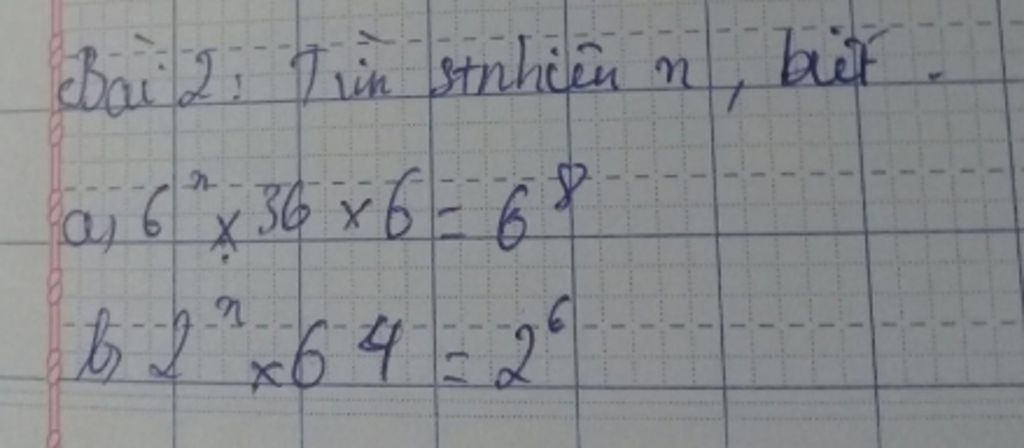 Bài 2: Tìm stnhiên n, biết.
a, 6ⁿ × 36 × 6 = 6⁸
b, 2ⁿ × 64 = 2⁶